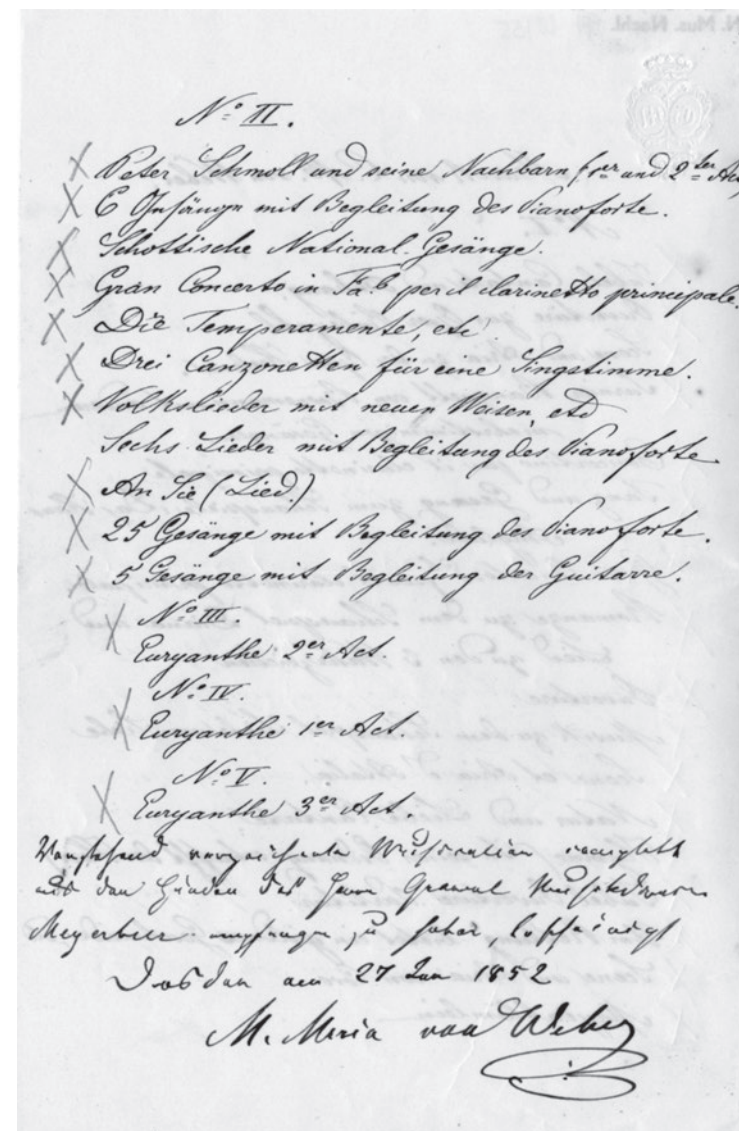 No II.
Peter Schmoll und seine Nachbarn 1er und 2ter Act
6 Gesänge mit Begleitung des Pianoforte.
Schottische National-Gesänge.
Gran Concerto in Fa b per il clarinetto principale.
Die Temperamente, etc
Drei Canzonetten für eine Singstimme.
Volkslieder mit neuen Weisen, etc
Sechs Lieder mit Begleitung des Pianoforte
An Sie (Lied.)
25 Gesänge mit Begleitung des Pianoforte.
5 Gesänge mit Begleitung der Guitarre.
No III.
Euryanthe 2er Act.
No IV.
Euryanthe 1er Act.
No V.
Euryanthe 3er Act.
Vorstehend verzeichnete Musicalien complett
aus den Händen des Herrn General Musikdirector
Meyerbeer empfangen zu haben, bescheinigt
Dresden am 27 Jan 1852
M. Maria von Weber